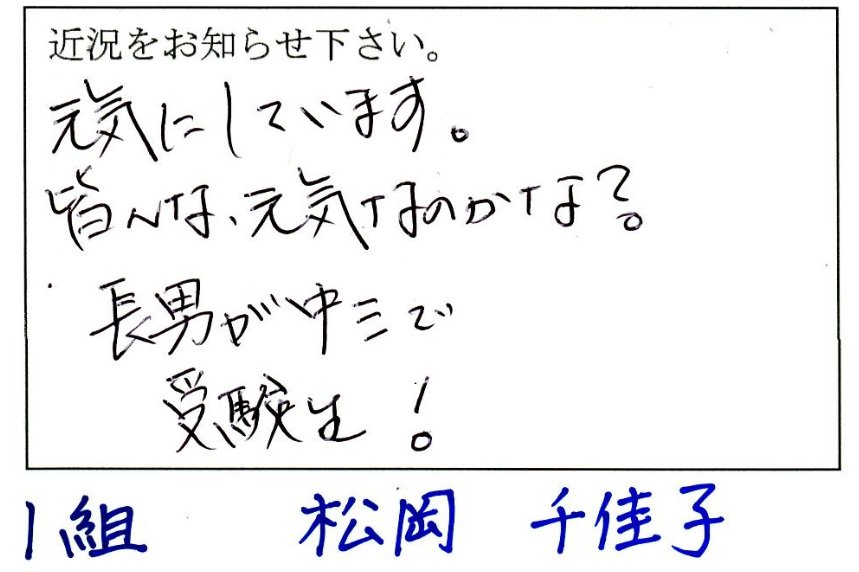 近況をお知らせ下さい。
元気にしています。
皆んな、元気なのかな?
長男が中三で
受験生!
1組 松岡 千佳子